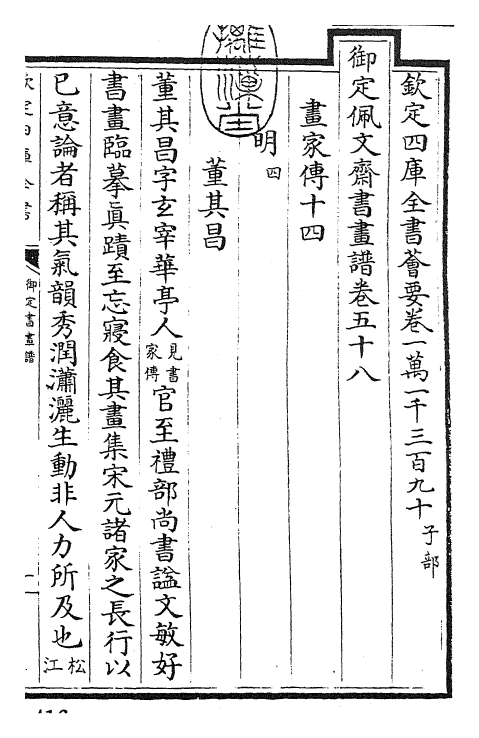 欽定四庫全書薈要卷一萬一千三百九十 子部
御定佩文齋書畫譜卷五十八
畫家傳十四
明 四
董其昌
董其昌字玄宰華亭人見書家傳官至禮部尚書諡文敏好
書畫臨摹眞蹟至忘寢食其畫集宋元諸家之長行以
己意論者稱其氣韻秀潤瀟灑生動非人力所及也松江
御定書畫譜